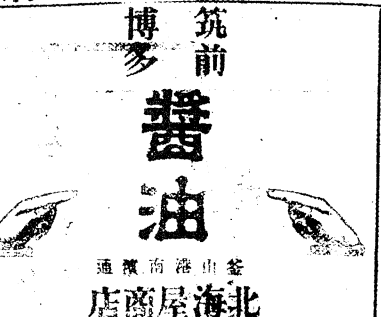 筑前
博多
醬油
釜山港南濱通
北海屋商店